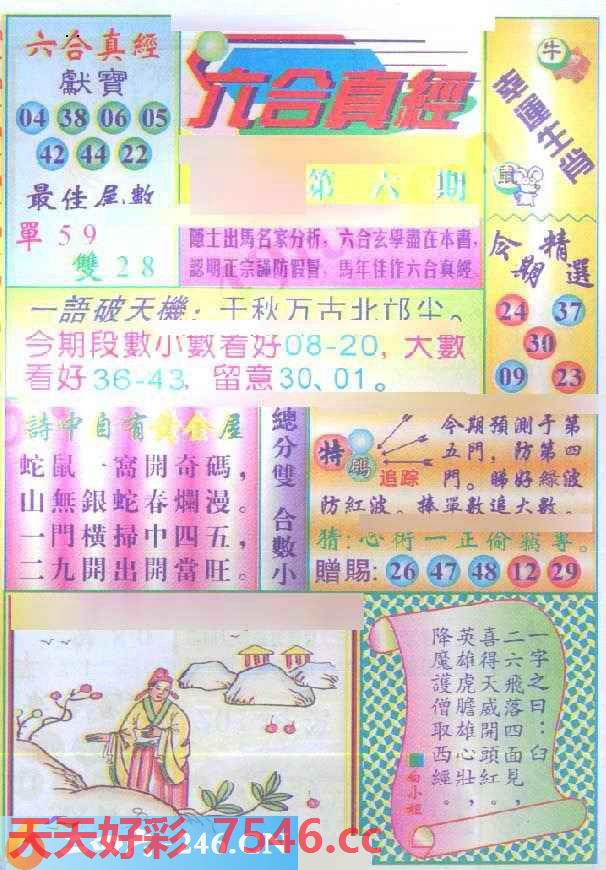 六合真經
獻寶
04 38 06 05
42 44 22
最佳尾數
單59
雙28
六合真經
第六期
隱士出馬名家分析，六合玄學盡在本書，
認明正宗謹防假冒，馬年佳作六合真經
幸運生肖
牛
鼠
今期精選
24 37
30
09 23
一語破天機：千秋万古北邙尘。
今期段數小數看好08-20，大數
看好36-43，留意30、01。
詩中自有黃金屋
蛇鼠一窩開奇碼，
山無銀蛇春爛漫。
一門橫掃中四五，
二九開出開當旺。
總分雙 合數小
特碼
追踪
今期預測于第
五門，防第四
門。睇好綠波
防紅波。捧單數追大數。
猜：心術一正偷竊專。
贈賜：26 47 48 12 29
一字之曰：臼
二六飛落四面見，
喜得天威開頭紅。
英雄虎膽雄心壯，
降魔護僧取西經。
白小姐
天天好彩 7546.cc
246.CN